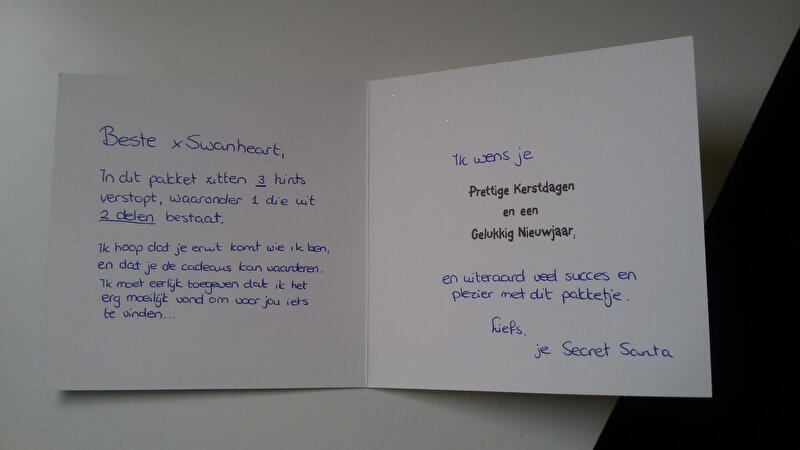 Beste xSwanheart,
In dit pakket zitten 3 hints
verstopt, waaronder 1 die uit
2 delen bestaat.
Ik hoop dat je eruit komt wie ik ben,
en dat je de cadeaus kan waarderen.
Ik moet eerlijk toegeven dat ik het
erg moeilijk vond om voor jou iets
te vinden...
Ik wens je
Prettige Kerstdagen
en een
Gelukkig Nieuwjaar,
en uiteraard veel succes en
plezier met dit pakketje.
Liefs,
je Secret Santa